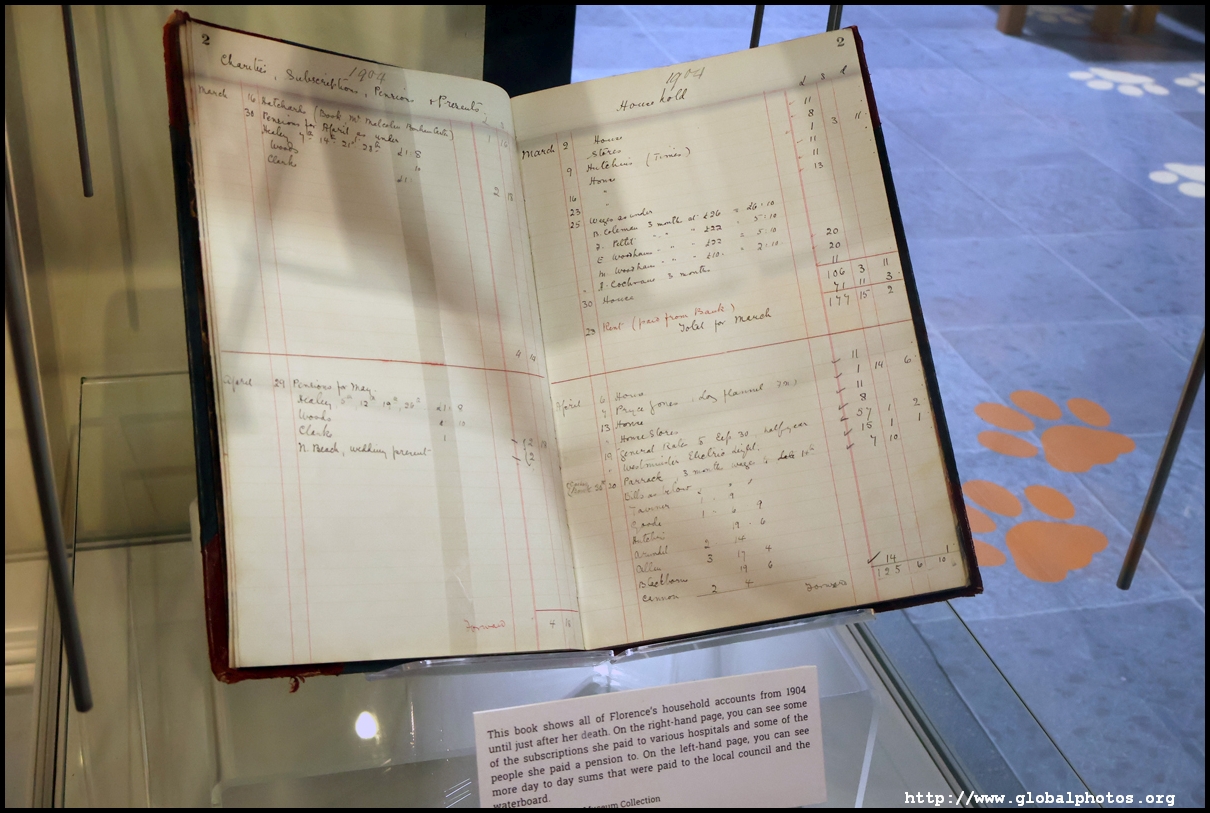 2
1904
Charities, Subscriptions, Pensions & Presents
March 16 Hatchards (Book, Mr Malcolm
30 Pensions for April as under
Healey 7th 14th 21st 28th £1. 8
Woods 10
Clark £1.
2 18
4 14
April 29 Pensions for May.
Healey 5th, 12th, 19th, 26th £1. 8
Woods 10
Clark 1
N. Beach, wedding present
Forward
2
1904
Household
£ s d
March 2 House 11
Stores 8
9 Hutchins (Times) 1 3 11
House 11
16 " 11
23 " 13
25 Wages as under
N. Coleman 3 month at £26 = £6.10
J. Pellet " " " £22 " 5.10
E. Woodham " " " £22 " 5.10
M. Woodham " " " £10. " 2.10. 20
" S. Cochrane 3 months 20
30 House 11
106 3 11
23 Rent (paid from Bank) 71 11 3
Total for March 177 15 2
April 6 House 11
7 Pryce Jones, 1 14 6
13 House 11
" House Stores 8
19 General Rates 5 half year 57 1 2
" Westminster Electric Light. 15 1 1
30 Parrack, 3 month wages to 7 10
Bills as below
Taverner
Goode 1. 6 9
19. 6
Arundel 2 14
Allen 3 17 4
19 6
Cannon 2 4
14 1
Forward 125 6 10
This book shows all of Florence's household accounts from 1904
until just after her death. On the right-hand page, you can see some
of the subscriptions she paid to various hospitals and some of the
people she paid a pension to. On the left-hand page, you can see
more day to day sums that were paid to the local council and the
waterboard.
Museum Collection
http://www.globalphotos.org